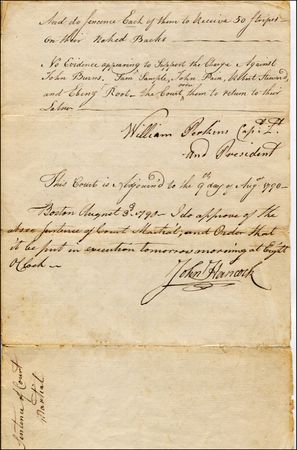 And do sentence Each of them to Receive 50 stripes
on their Naked Backs
No Evidence appearing to Support the Charge Against
John Burns, Sam Sample, John
and Ebenz Root. the Court order them to return to their
Labour
William Perkins Capt. Lt.
and President
This Court is Adjourn'd to the 9 day of Augt 1790
Boston August 3d. 1790. I do approve of the
above sentence of Court Martial, and Order that
it be put in execution tomorrow morning at Eight
O Clock
John Hancock
Sentence of Court
Martial